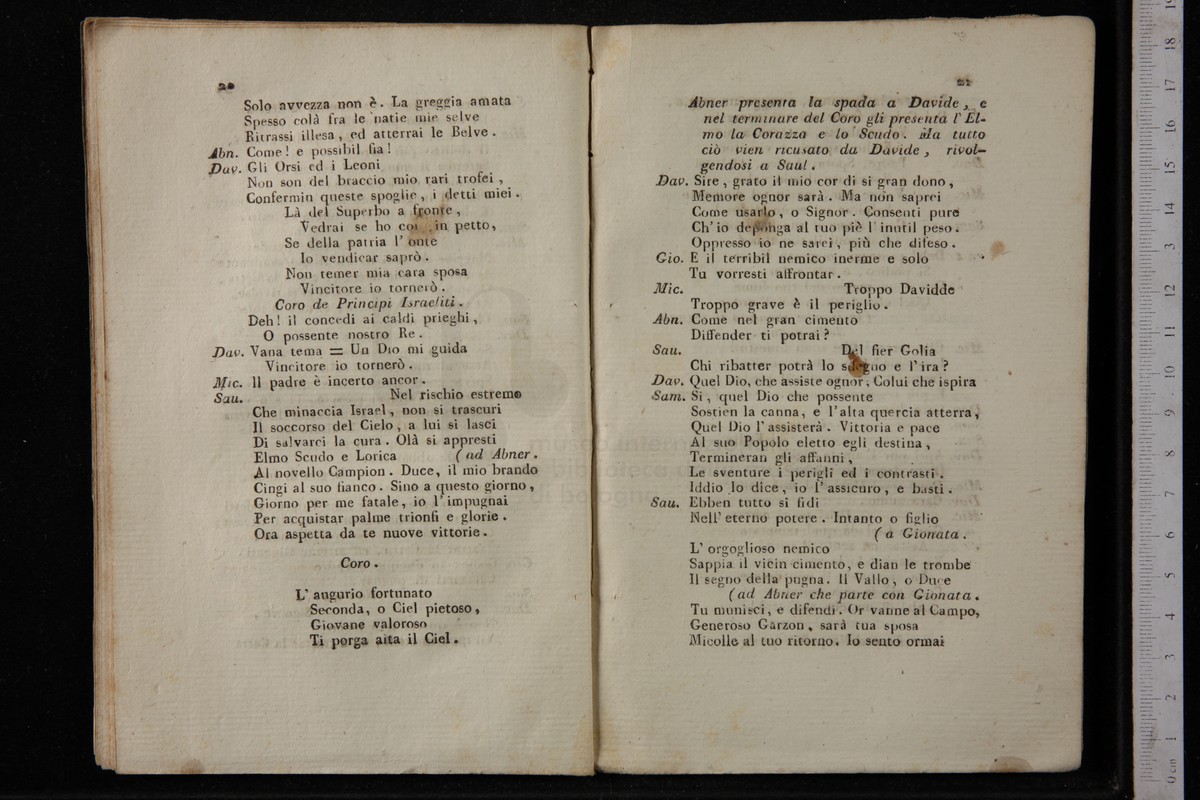 20
Solo avvezza non è. La greggia amata
Spesso colà fra le natie mie selve
Ritrassi illesa, ed atterrai le Belve.
Abn. Come! e possibil fia!
Dav. Gli Orsi ed i Leoni
Non son del braccio mio rari trofei,
Confermin queste spoglie, i detti miei.
Là del Superbo a fronte,
Vedrai se ho in petto,
Se della patria l' onte
Io vendicar saprò.
Non temer mia cara sposa
Vincitore io tornerò.
Coro de Principi Israeliti.
Deh! il concedi ai caldi prieghi,
O possente nostro Re.
Dav. Vana tema = Un Dio mi guida
Vincitore io tornerò.
Mic. Il padre è incerto ancor.
Sau. Nel rischio estremo
Che minaccia Israel, non si trascuri
Il soccorso del Cielo, a lui si lasci
Di salvarci la cura. Olà si appresti
Elmo Scudo e Lorica (ad Abner.
Al novello Campion. Duce, il mio brando
Cingi al suo fianco. Sino a questo giorno,
Giorno per me fatale, io l' impugnai
Per acquistar palme trionfi e glorie.
Ora aspetta da te nuove vittorie.
Coro.
L' augurio fortunato
Seconda, o Ciel pietoso,
Giovane valoroso
Ti porga aita il Ciel.
21
Abner presenta la spada a Davide, e
nel terminare del Coro gli presenta l' El-
mo la Corazza e lo Scudo. Ma tutto
ciò vien ricusato da Davide, rivol-
gendosi a Saul.
Dav. Sire, grato il mio cor di si gran dono,
Memore ognor sarà. Ma non saprei
Come usarlo, o Signor. Consenti pure
Ch' io deponga al tuo piè l' inutil peso.
Oppresso io ne sarei, più che difeso.
Gio. E il terribil nemico inerme e solo
Tu vorresti affrontar.
Mic. Troppo Davidde
Troppo grave è il periglio.
Abn. Come nel gran cimento
Diffender ti potrai?
Sau. Del fier Golia
Chi ribatter potrà lo sdegno e l' ira?
Dav. Quel Dio, che assiste ognor, Colui che ispira
Sam. Si, quel Dio che possente
Sostien la canna, e l' alta quercia atterra,
Quel Dio l' assisterà. Vittoria e pace
Al suo Popolo eletto egli destina,
Termineran gli affanni,
Le sventure i perigli ed i contrasti.
Iddio lo dice, io l' assicuro, e basti.
Sau. Ebben tutto si fidi
Nell' eterno potere. Intanto o figlio
(a Gionata.
L' orgoglioso nemico
Sappia il vicin cimento, e dian le trombe
Il segno della pugna. Il Vallo, o Duce
(ad Abner che parte con Gionata.
Tu munisci, e difendi. Or vanne al Campo,
Generoso Garzon, sarà tua sposa
Micolle al tuo ritorno. Io sento ormai